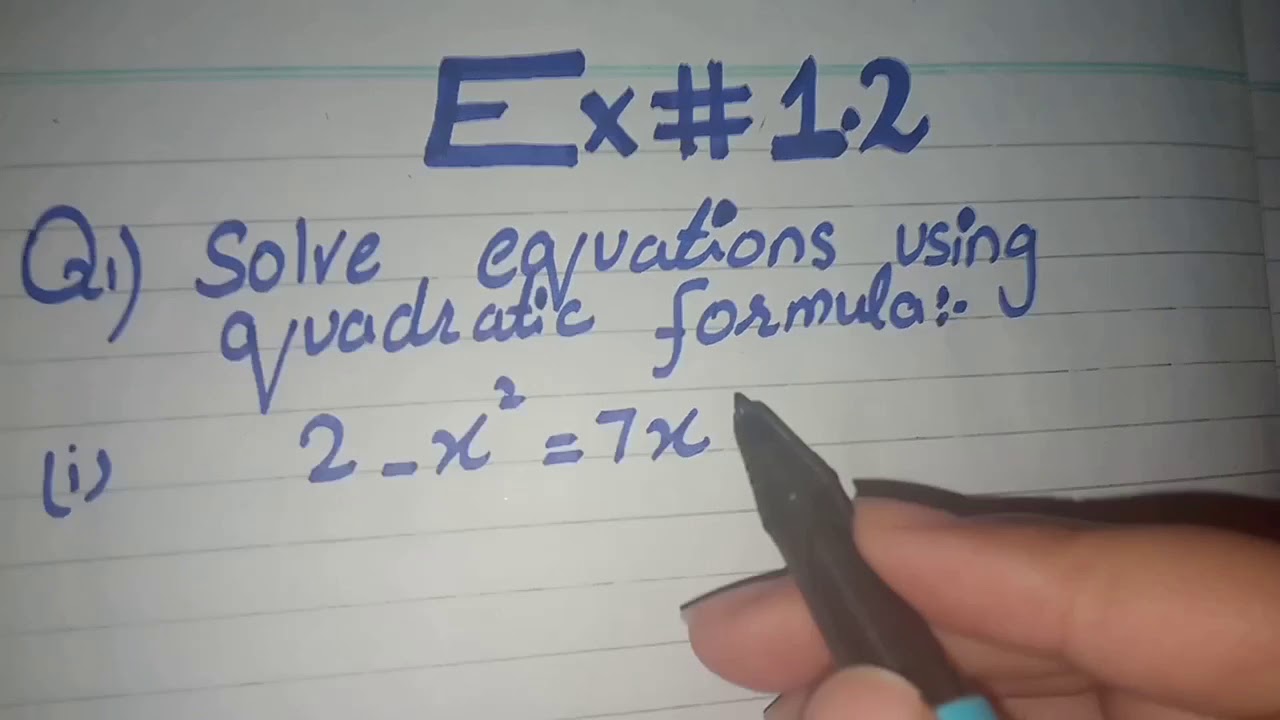 Ex#1.2
Q1) Solve equations using
quadratic formula:-
(i) 2 - x² = 7x